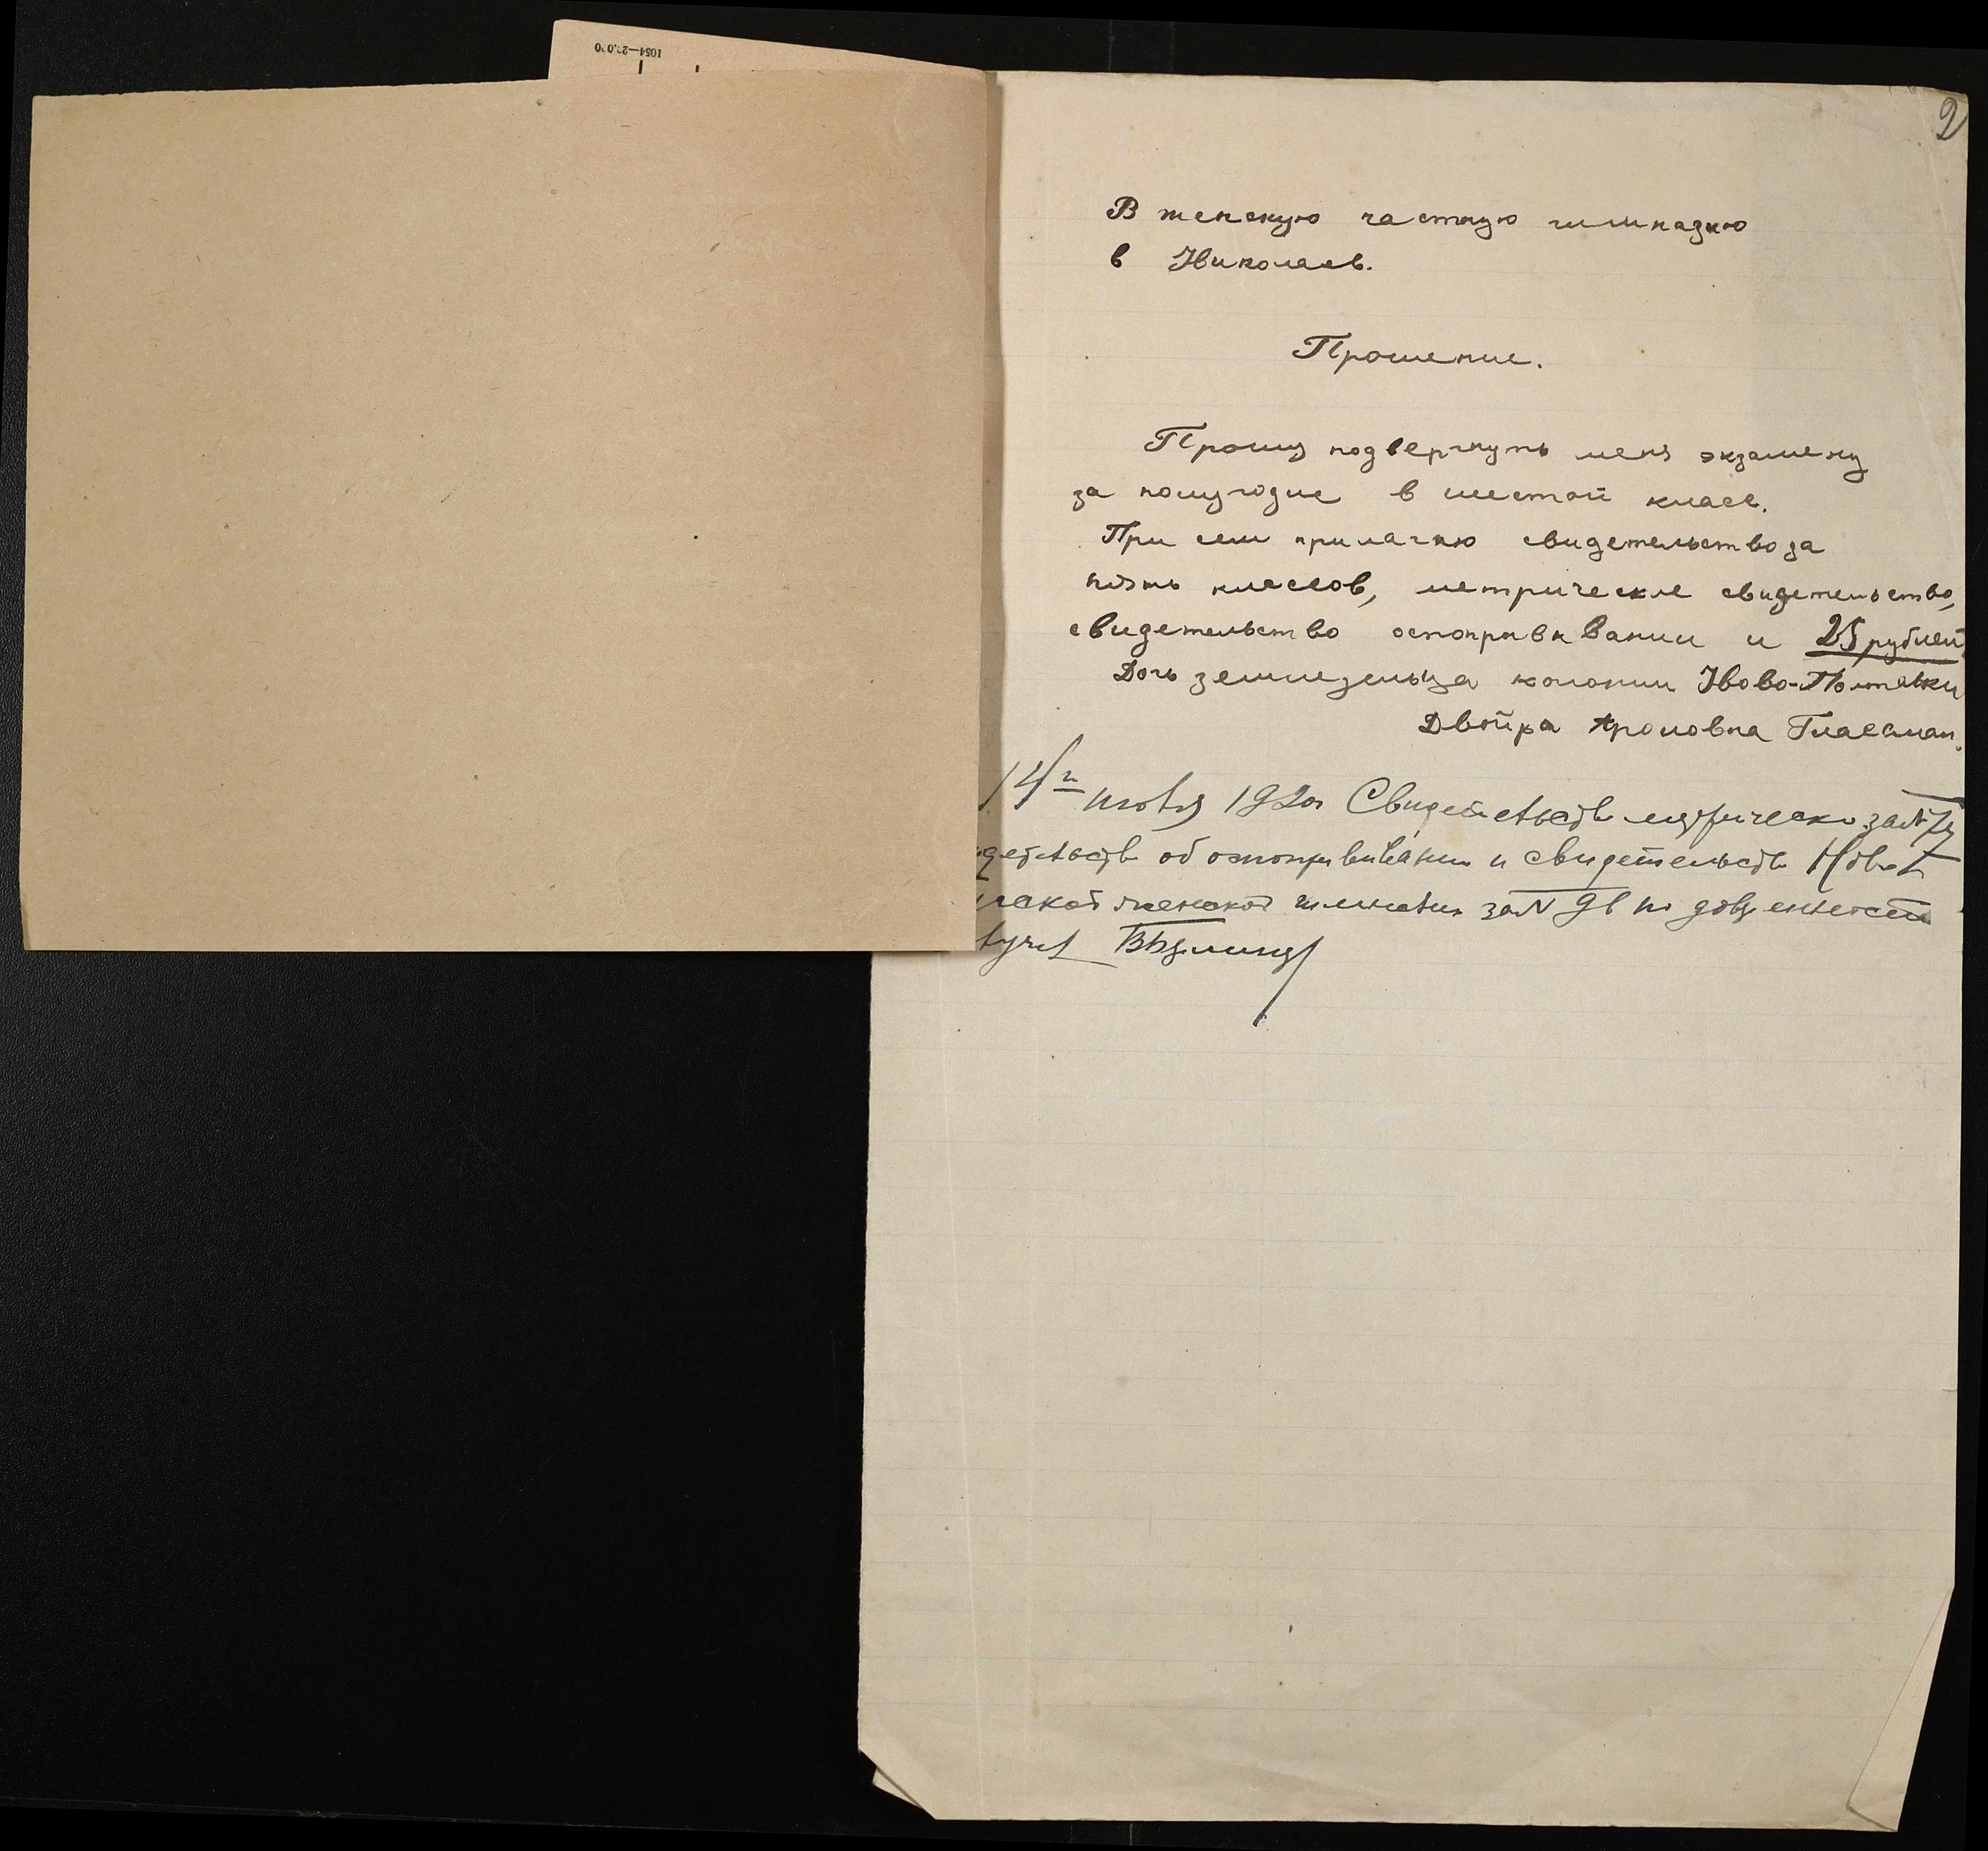 1054—20.000
2
В женскую частную гимназию
в Николаев.
Прошение.
Прошу подвергнуть меня экзамену
за полугодие в шестой класс.
При сем прилагаю свидетельство за
пять классов, метрическое свидетельство,
свидетельство оспопрививании и 25 рублей
Дочь земледельца колонии Ново-Полтавки
Двойра Ароновна Гласман.
14 июля 1920 Свидетельств метрическо за №
детельств об оспопрививании и свидетельств
женской гимназии за № по доверенности